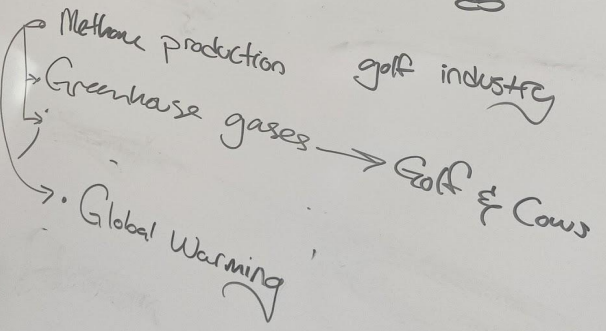 Methane production
golf industry
Greenhouse gases → Golf & Cows
Global Warming